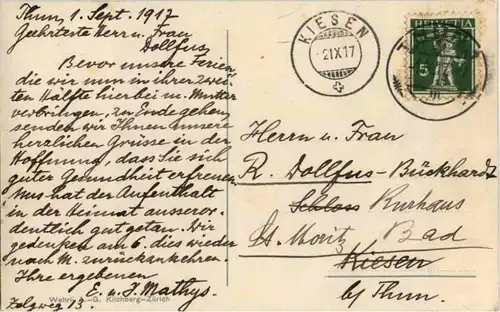 Thun, 1. Sept. 1917
Geehrtester Herr u. Frau
Dollfus,
Bevor unsre Ferien,
die wir nun in ihrer zwei-
ten Hälfte hier bei m. Mutter
verbringen, zu Ende gehen,
senden wir Ihnen unsere
herzlichen Grüsse in der
Hoffnung, dass Sie sich
guter Gesundheit erfreuen.
Uns hat der Aufenthalt
in der Heimat ausseror-
dentlich gut getan. Wir
gedenken am 6. dies wieder
nach M. zurückzukehren.
Ihre ergebenen
E. u. J. Mathys.
Zelgweg 13.
Wehrli A.-G. Kilchberg-Zürich
KIESEN
-2.IX.17
HELVETIA
5
Herrn u. Frau
R. Dollfus-Bückhardt
Schloss Kurhaus
St. Moritz Bad
Kiesen
b/ Thun.